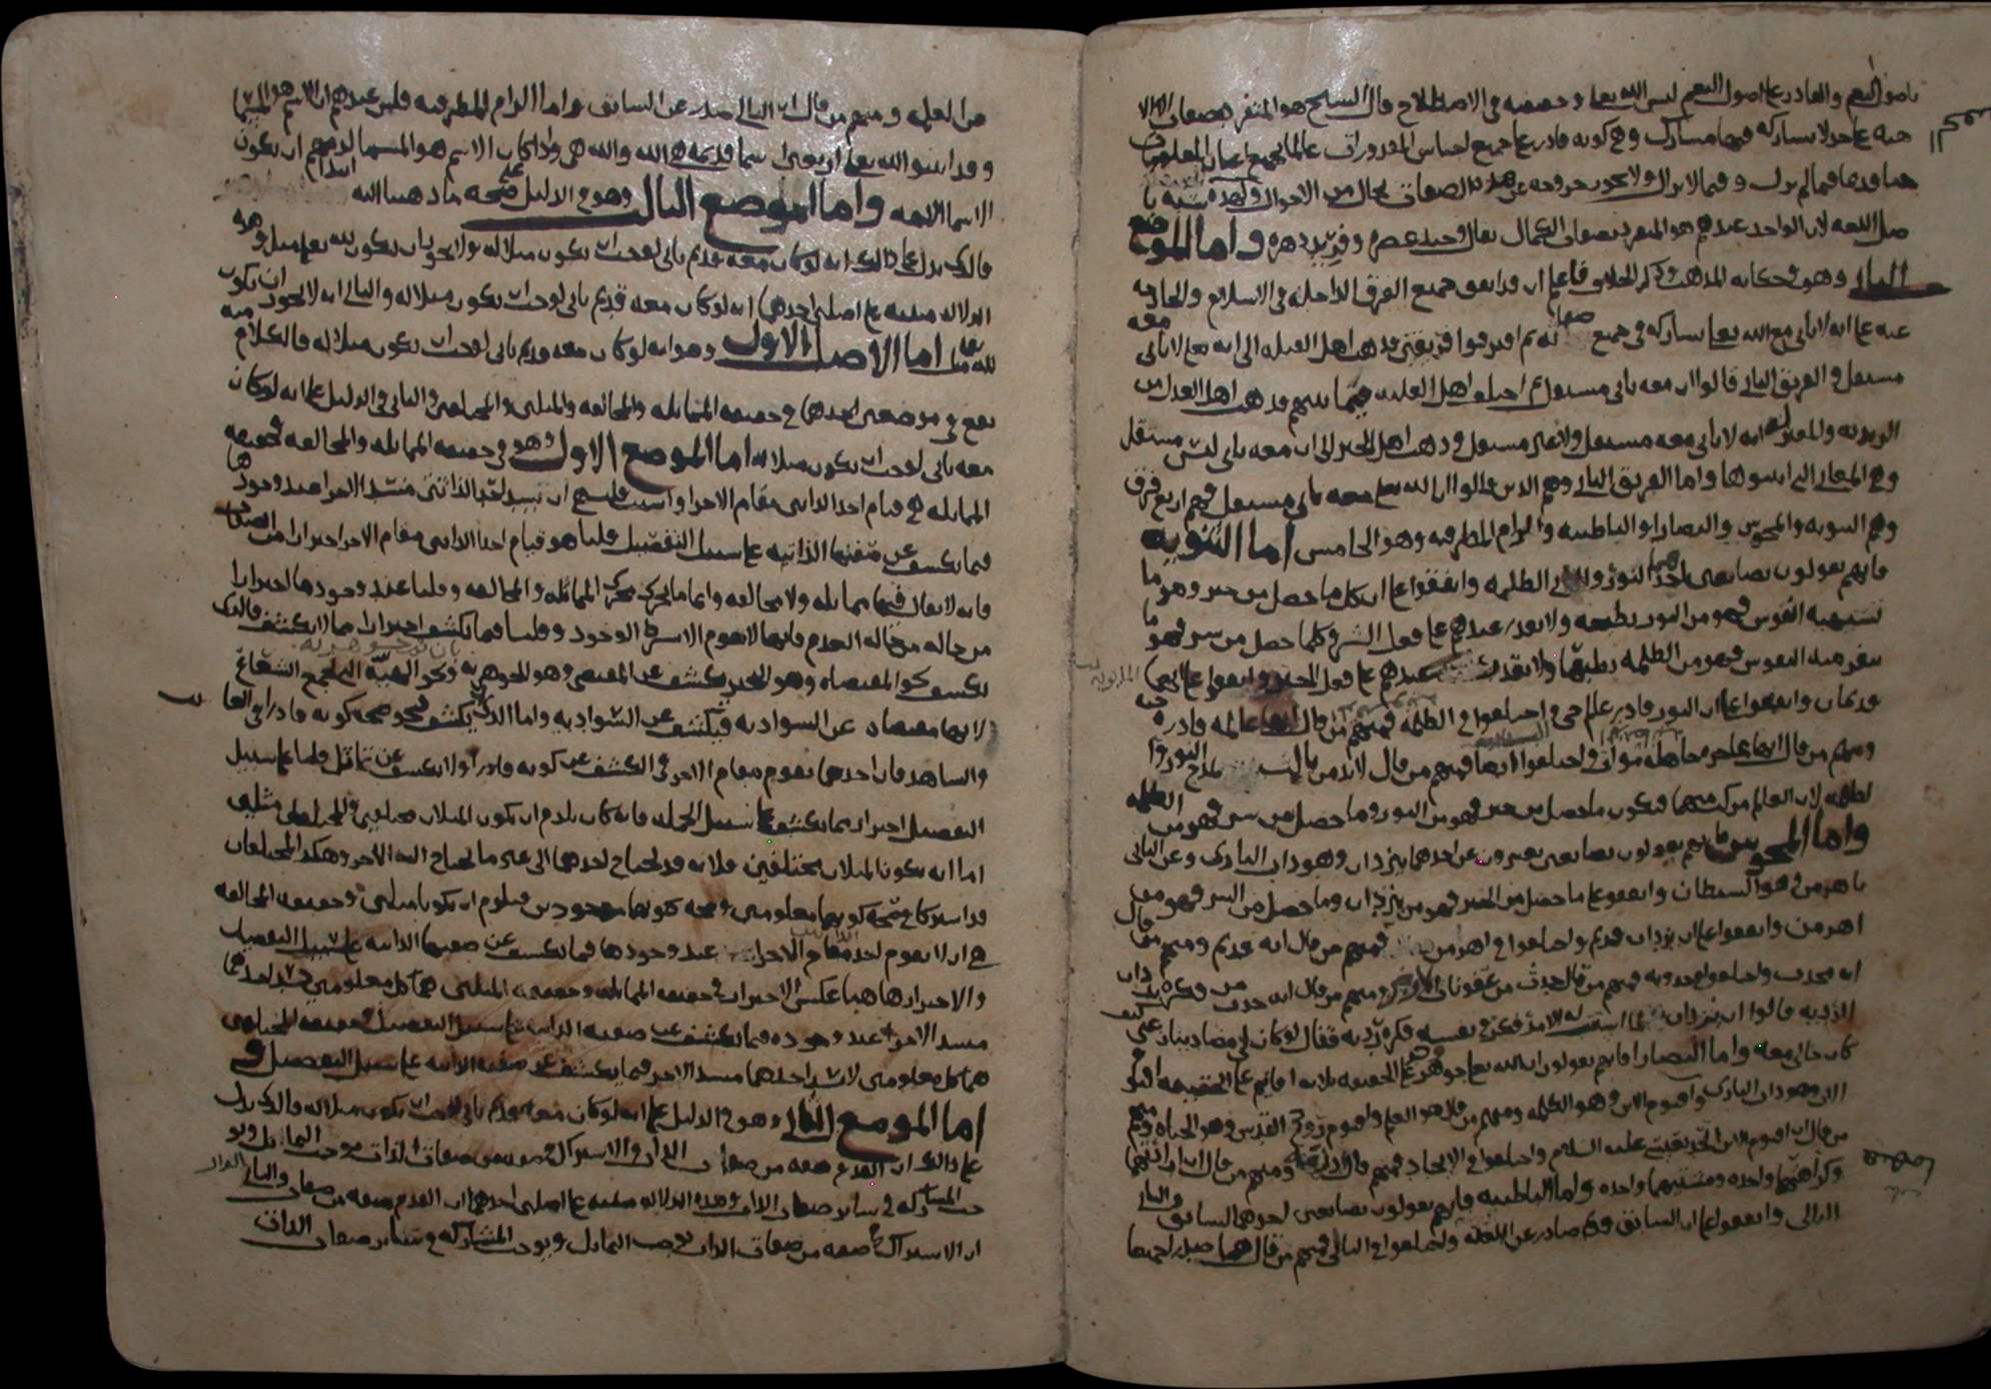 باصول النعم والقادر على اصول النعم ليس الا الله تعالى وحقيقته في الاصطلاح قال الشيخ هو المتفرد بصفات الالا
هيه على حد لا يشاركه فيها مشارك وهي كونه قادر على جميع اجناس المقدورات عالما بجميع اعيان المعلومات
حيا قديما فيما لم يزل وفيما لا يزال ولا يجوز خروجه عن هذه الصفات بحال من الاحوال
اللغه لان الواحد عندهم هو المتفرد بصفات الكمال يقال وحيد عصره وفريد دهره واما الموضع
الثاني وهو في حكايه المذهب وذكر الخلاف فاعلم ان قد اتفق جميع الفرق الداخله في الاسلام والخارجه
عنه على انه لا ثاني مع الله تعالى يشاركه في جميع صفاته ثم افترقوا فرقتين فذهب اهل القبله الى انه تعالى لا ثاني معه
مستقل والفريق الثاني قالوا ان معه ثاني مستقل ثم اختلف اهل القبله فيما بينهم فذهب اهل العدل من
الزيديه والمعتزله انه لا ثاني معه مستقل ولا غير مستقل وذهب اهل الجبر الى ان معه ثاني ليس مستقل
وهي المعاني التي اثبتوها واما الفريق الثاني وهم الذين قالوا ان الله تعالى معه ثاني مستقل فهم اربع فرق
وهم الثنويه والمجوس والنصارا والباطنيه والزام المطرفيه وهو الخامس اما الثنويه
فانهم يقولون بصانعين احدهما النور والثاني الظلمه واتفقوا على ان كل ما حصل من خير وهو ما
تشتهيه النفوس فهو من النور بطبعه ولا يقدر عندهم على فعل الشر وكلما حصل من شر فهو ما
تنفر منه النفوس فهو من الظلمه بطبعها ولا تقدر عندهم على فعل الخير واتفقوا على انهما
قديمان واتفقوا على ان النور قادر عالم حي واختلفوا في الظلمه فمنهم من قال انها عالمه قادره حيه
ومنهم من قال انها عاجزه جاهله موات واختلفوا فمنهم من قال لا بد من ثالث
لان العالم مركب منهما فيكون ما حصل من خير فهو من النور وما حصل من شر فهو من الظلمه
واما المجوس فانهم يقولون بصانعين يعبرون عن احدهما بيزدان وهو ذات الباري وعن الثاني
باهرمن وهو الشيطان واتفقوا على ما حصل من الخير فهو من يزدان وما حصل من الشر فهو من
اهرمن واتفقوا على ان يزدان قديم واختلفوا في اهرمن فمنهم من قال انه قديم ومنهم من قال
انه محدث واختلفوا بحدوثه فمنهم من قال حدث من عفونات الارض ومنهم من قال انه حدث من فكره يزدان
الرديه قالوا ان يزدان لما استتب له الامر فكر في نفسه فكره رديه فقال لو كان لي مضاد ينازعني كيف
كان حالي معه واما النصارا فانهم يقولون ان الله تعالى جوهر على الحقيقه ثلاثه اقانيم على الحقيقه اقنوم
الاب وهو ذات الباري واقنوم الابن وهو الكلمه ومنهم من قال هو العلم واقنوم روح القدس وهو الحياه ومنهم
من قال ان اقنوم الابن اتحد بعيسى عليه السلام واختلفوا في الاتحاد فمنهم من قال ومنهم من قال
وكراهتهما واحده ومشيتهما واحده واما الباطنيه فانهم يقولون بصانعين احدهما السابق والثاني
التالي واتفقوا على ان السابق صادر عن العله واختلفوا في التالي فمنهم من قال هما صدرا جميعا
من العله ومنهم من قال ان التالي صدر عن السابق واما الزام المطرفيه فلان عندهم ان الاسم هو المسما
وقد اثبتوا لله تعالى اربعين اسما قديمه هي الله والله هي واذا كان الاسم هو المسما لزمهم ان يكون
الاسما الهه واما الموضع الثالث وهو في الدليل على صحه ما ذهبنا اليه
فالذي يدل على ذلك انه لو كان معه قديم ثاني لوجب ان يكون مثلا له ولا يجوز ان يكون لله تعالى مثل وهذه
الدلاله مبنيه على اصلين احدهما انه لو كان معه قديم ثاني لوجب ان يكون مثلا له والثاني انه لا يجوز ان يكون
لله تعالى مثل اما الاصل الاول وهو انه لو كان معه قديم ثاني لوجب ان يكون مثلا له فالكلام منه
يقع في موضعين احدهما في حقيقه المماثله والمخالفه والمثلين والمختلفين والثاني في الدليل على انه لو كان
معه ثاني لوجب ان يكون مثلا له اما الموضع الاول وهو في حقيقه المماثله والمخالفه فحقيقه
المماثله هي قيام احد الذاتين مقام الاخر وان شيت قلت هي ان تسد احد الذاتين مسد الاخر عند وجودها
فيما يكشف عن صفتها الذاتيه على سبيل التفصيل قلنا هو قيام احد الذاتين مقام الاخر احترازا من الصفات
فانه لا يقال فيها مماثله ولا مخالفه وانما ما يجري مجرى المماثله والمخالفه وقلنا عند وجودها احترازا
من حاله من حاله العدم فانها لا تقوم الا بشرط الوجود وقلنا فيما يكشف احترازا مما لا يكشف فالذي
يكشف كالمقتضاه وهو التحيز يكشف عن المقتضي وهو الجوهريه ونحو الهيئه التي تجمع الشعاع
لانها مقتضاه عن السواديه فيكشف عن السواديه واما الذي لا يكشف فنحو صحه كونه قادرا في الغايب
والشاهد فان احدهما يقوم مقام الاخر في الكشف عن كونه قادرا ولا يكشف عن تماثل قلنا على سبيل
التفصيل احترازا مما يكشف على سبيل الجمله فانه كان يلزم ان يكون المثلان مختلفين والمختلفين مثلين
اما انه يكونا المثلان مختلفين فلانه قد يحتاج احدهما الى غير ما يحتاج اليه الاخر وهكذا المختلفان
قد اشتركا في صحه كونهما معلومين وصحه كونهما موجودين فيلزم ان يكونا مثلين وحقيقه المخالفه
هي ان لا يقوم احد الذاتين مقام الاخرى عند وجودها فيما يكشف عن صفتها الذاتيه على سبيل التفصيل
والاحترازها هنا عكس الاحتراز في حقيقه المماثله وحقيقه المثلين هما كل معلومين يسد احدهما
مسد الاخر عند وجوده فيما يكشف عن صفته الذاتيه على سبيل التفصيل وحقيقه المختلفين
هما كل معلومين لا يسد احدهما مسد الاخر فيما يكشف عن صفته الذاتيه على سبيل التفصيل
اما الموضع الثاني وهو في الدليل على انه لو كان معه قديم ثاني لوجب ان يكون مثلا له فالذي يدل
على ذلك ان القدم صفه من صفات الذات والاشتراك في صفه من صفات الذات يوجب التماثل ويو
جب المشاركه في سائر صفات الذات وهذه الدلاله مبنيه على اصلين احدهما ان القدم صفه من صفات الذات والثاني
ان الاشتراك في صفه من صفات الذات يوجب التماثل ويوجب المشاركه في سائر صفات الذات